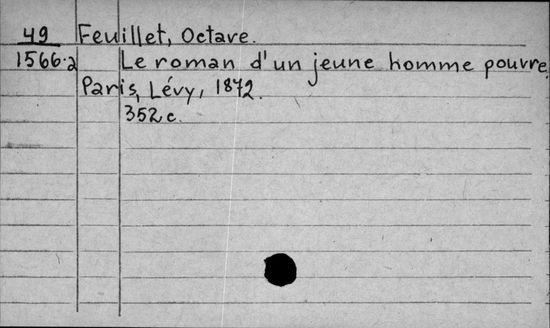 49 Feuillet, Octave.
1566.2 Le roman d'un jeune homme pouvre,
Paris, Lévy, 1872.
352 c.